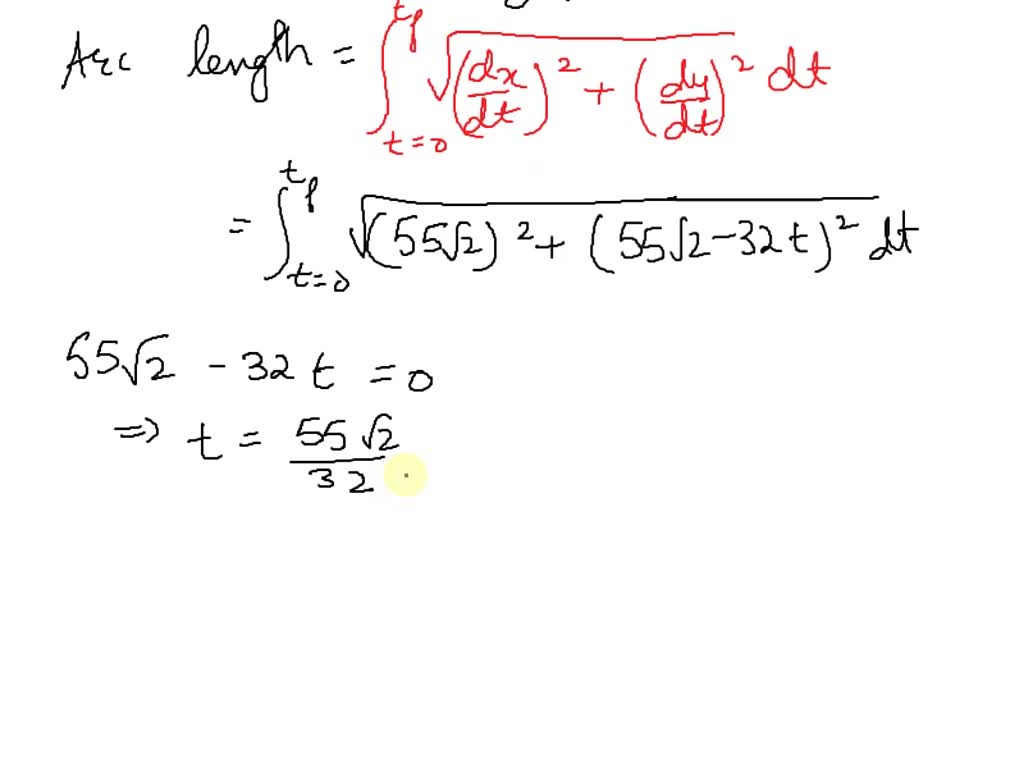 Arc length = ∫_{t=0}^{t_f} √((dx/dt)² + (dy/dt)²) dt
= ∫_{t=0}^{t_f} √((55√2)² + (55√2 - 32t)²) dt
55√2 - 32t = 0
⇒ t = 55√2/32